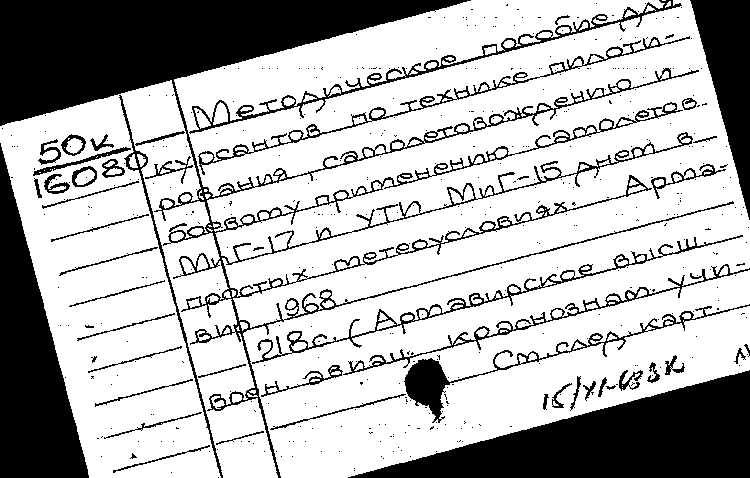 50к
16080
Методическое пособие для
курсантов по технике пилоти-
рования, самолетовождению и
боевому применению самолетов
МиГ-17 и УТИ МиГ-15 днем в
простых метеоусловиях. Арма-
вир, 1968.
218с. (Армавирское высш.
воен. авиац. краснознам. учи-
См. след. карт.